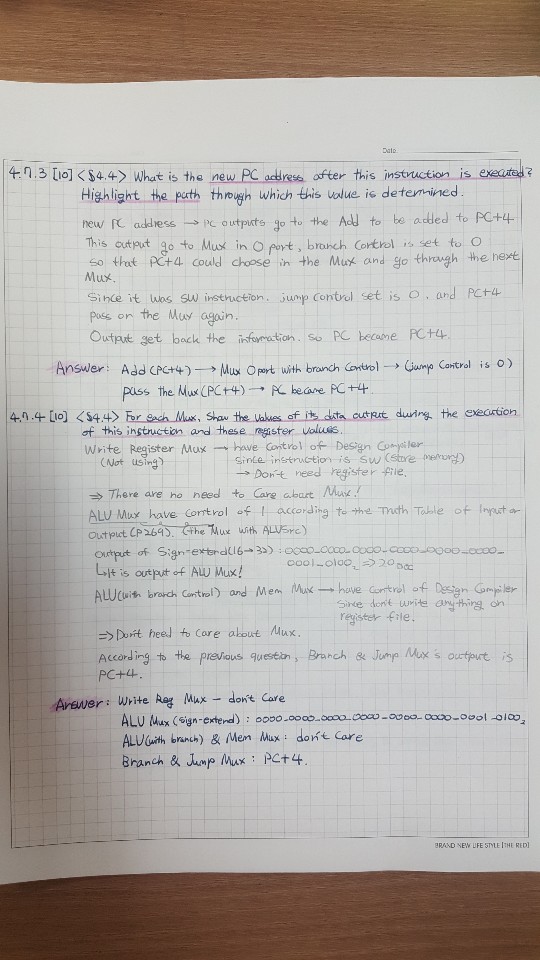 Date
4.7.3 [10] <§4.4> What is the new PC address after this instruction is executed?
Highlight the path through which this value is determined.
new PC address → PC outputs go to the Add to be added to PC+4
This output go to Mux in 0 port, branch control is set to 0
so that PC+4 could choose in the Mux and go through the next
Mux.
Since it was sw instruction, jump control set is 0, and PC+4
pass on the Mux again.
Output get back the information. So PC became PC+4.
Answer: Add (PC+4) → Mux 0 port with branch control → (jump control is 0)
pass the Mux (PC+4) → PC became PC+4
4.7.4 [10] <§4.4> For each Mux, show the values of its data output during the execution
of this instruction and these register values.
Write Register Mux → have control of Design Compiler
(Not using) since instruction is sw (store memory)
→ Don't need register file.
⇒ There are no need to care about Mux!
ALU Mux have control of 1 according to the Truth Table of Input or
Output (P269). (the Mux with ALUSrc)
Output of Sign-extend (16→32) : 0000_0000_0000_0000_0000_0000_
0001_0100₂ ⇒ 20
↳It is output of ALU Mux!
ALU (with branch control) and Mem Mux → have control of Design Compiler
since don't write anything on
register file.
⇒ Don't need to care about Mux.
According to the previous question, Branch & Jump Mux's output is
PC+4.
Answer: Write Reg Mux – don't care
ALU Mux (sign-extend) : 0000_0000_0000_0000_0000_0000_0001_0100₂
ALU (with branch) & Mem Mux : don't care
Branch & Jump Mux : PC+4.
BRAND NEW LIFE STYLE [THE RED]